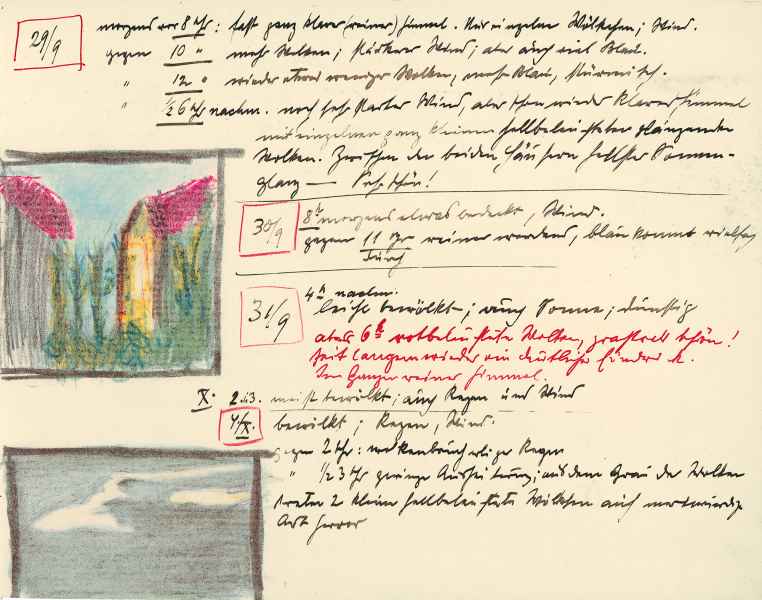 29/9
morgens vor 8 Uhr: fast ganz klarer (reiner) Himmel. Nur einzelne Wölkchen; Wind.
gegen 10 " mehr Wolken; stärkerer Wind; aber auch viel Blau.
" 12 " wieder etwas weniger Wolken, mehr Blau, stürmisch.
" ½ 6 Uhr nachm. noch sehr starker Wind, aber schon wieder klarer Himmel
mit einzelnen ganz kleinen hellbeleuchteten glänzenden
Wolken. Zwischen den beiden Häusern hellster Sonnen-
glanz — Sehr schön!
30/9
8h morgens etwas bedeckt, Wind.
gegen 11 Uhr reiner werdend, blau kommt vielfach
durch
31/9
4h nachm.
leicht bewölkt; auch Sonne; dunstig
abds 6h rotbeleuchtete Wolken, prachtvoll schön!
Seit langem wieder ein deutlicher
Im Ganzen reiner Himmel.
X. 2. u. 3. meist bewölkt; auch Regen und Wind
4/X. bewölkt; Regen, Wind.
gegen 2 Uhr: wolkenbruchartiger Regen
" ½ 3 Uhr geringe Aufheiterung; aus dem Grau der Wolken
treten 2 kleine hellbeleuchtete Wölkchen auf merkwürdige
Art hervor